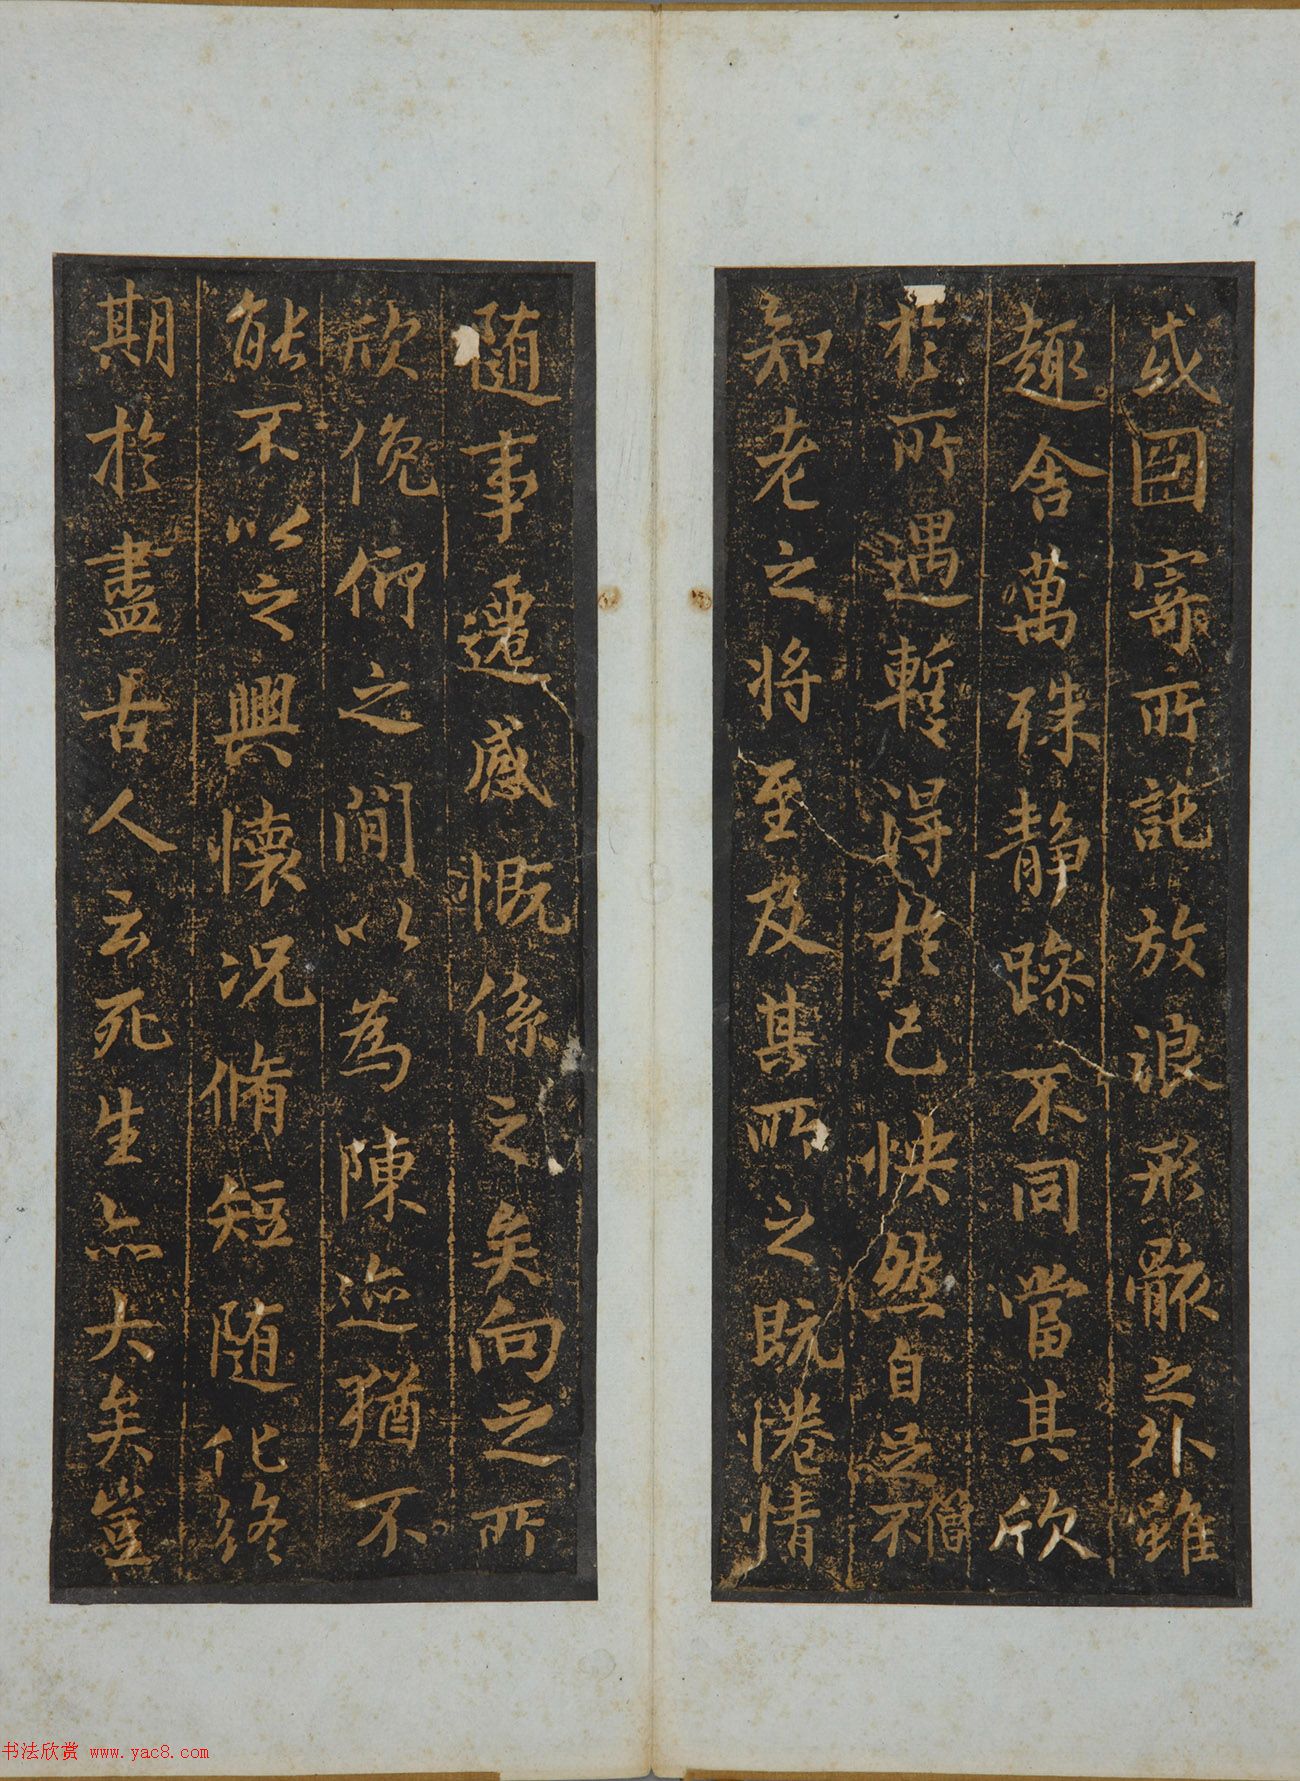 或因寄所託放浪形骸之外雖
趣舍萬殊靜躁不同當其欣
於所遇暫得於己怏然自足不
僧
知老之將至及其所之既惓情
隨事遷感慨係之矣向之所
欣俛仰之間以為陳迹猶不
能不以之興懷況脩短隨化終
期於盡古人云死生亦大矣豈
书法欣赏 www.yac8.com